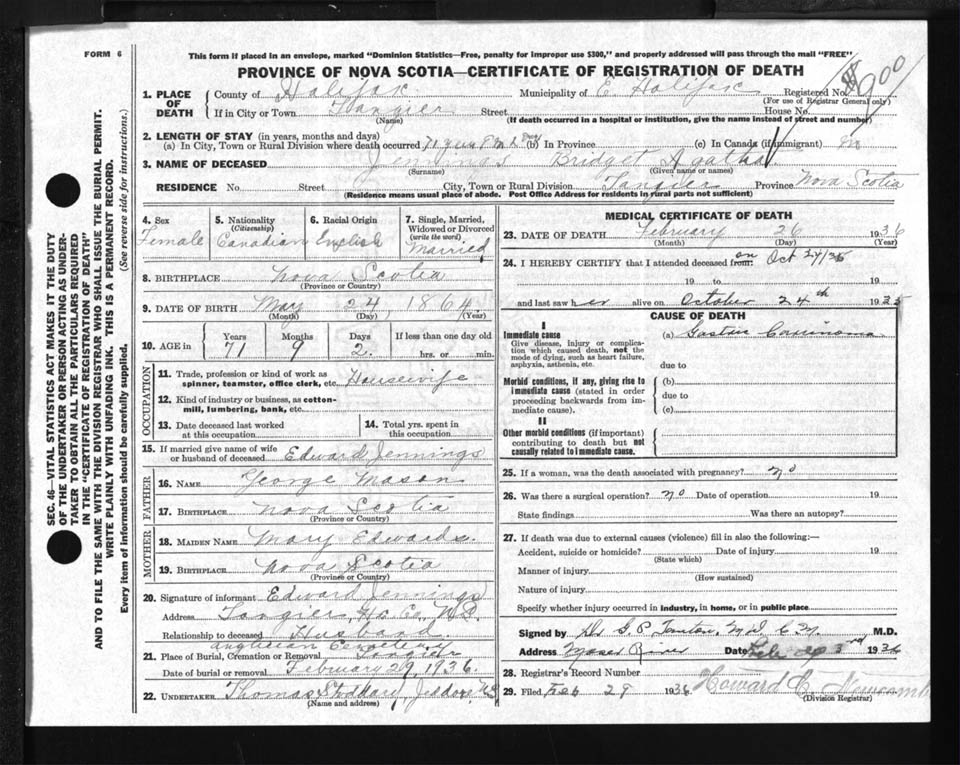 FORM 6
This form if placed in an envelope, marked "Dominion Statistics—Free, penalty for improper use $300," and properly addressed will pass through the mail "FREE"
PROVINCE OF NOVA SCOTIA—CERTIFICATE OF REGISTRATION OF DEATH
1. PLACE OF DEATH
County of Halifax Municipality of E. Halifax Registered No.
(For use of Registrar General only)
If in City or Town Tangier Street House No.
(Name) (If death occurred in a hospital or institution, give the name instead of street and number)
2. LENGTH OF STAY (in years, months and days)
(a) In City, Town or Rural Division where death occurred 71 (b) In Province (c) In Canada (if immigrant)
3. NAME OF DECEASED Jennings Bridget Agatha
(Surname) (Given name or names)
RESIDENCE No. Street City, Town or Rural Division Tangier Province Nova Scotia
(Residence means usual place of abode. Post Office Address for residents in rural parts not sufficient)
4. Sex
Female
5. Nationality
(Citizenship)
Canadian
6. Racial Origin
English
7. Single, Married, Widowed or Divorced
(write the word)
Married
8. BIRTHPLACE Nova Scotia
(Province or Country)
9. DATE OF BIRTH May 24, 1864
(Month) (Day) (Year)
10. AGE in
Years Months Days If less than one day old
71 9 2 hrs. or min.
OCCUPATION
11. Trade, profession or kind of work as spinner, teamster, office clerk, etc. Housewife
12. Kind of industry or business, as cotton-mill, lumbering, bank, etc.
13. Date deceased last worked at this occupation
14. Total yrs. spent in this occupation
15. If married give name of wife or husband of deceased Edward Jennings
FATHER
16. NAME George Mason
17. BIRTHPLACE Nova Scotia
(Province or Country)
MOTHER
18. MAIDEN NAME Mary Edwards
19. BIRTHPLACE Nova Scotia
(Province or Country)
20. Signature of informant Edward Jennings
Address Tangier, Hx Co., N.S.
Relationship to deceased Husband
Anglican Cemetery
21. Place of Burial, Cremation or Removal Tangier
Date of burial or removal February 29, 1936.
22. UNDERTAKER Thomas Stoddard, Jeddore N.S
(Name and address)
MEDICAL CERTIFICATE OF DEATH
23. DATE OF DEATH February 26 1936
(Month) (Day) (Year)
24. I HEREBY CERTIFY that I attended deceased from: on Oct 24/35
19 to 19
and last saw her alive on October 24th 1935
CAUSE OF DEATH
I
Immediate cause
Give disease, injury or complication which caused death, not the mode of dying, such as heart failure, asphyxia, asthenia, etc.
(a) Gastric Carcinoma
due to
Morbid conditions, if any, giving rise to immediate cause (stated in order proceeding backwards from immediate cause).
(b)
due to
(c)
II
Other morbid conditions (if important) contributing to death but not causally related to immediate cause.
25. If a woman, was the death associated with pregnancy? no
26. Was there a surgical operation? no Date of operation 19
State findings Was there an autopsy?
27. If death was due to external causes (violence) fill in also the following:—
Accident, suicide or homicide? Date of injury 19
(State which)
Manner of injury
(How sustained)
Nature of injury
Specify whether injury occurred in industry, in home, or in public place
Signed by Dr G. P. M.D. C.M. M.D.
Address Moser River Date 3rd 1936
28. Registrar's Record Number
29. Filed Feb 29 1936 Howard C. Newcomb
(Division Registrar)
SEC. 46—VITAL STATISTICS ACT MAKES IT THE DUTY
OF THE UNDERTAKER OR PERSON ACTING AS UNDER-
TAKER TO OBTAIN ALL THE PARTICULARS REQUIRED
IN THE "CERTIFICATE OF REGISTRATION OF DEATH"
AND TO FILE THE SAME WITH THE DIVISION REGISTRAR WHO SHALL ISSUE THE BURIAL PERMIT.
WRITE PLAINLY WITH UNFADING INK. THIS IS A PERMANENT RECORD.
Every item of information should be carefully supplied. (See reverse side for instructions.)